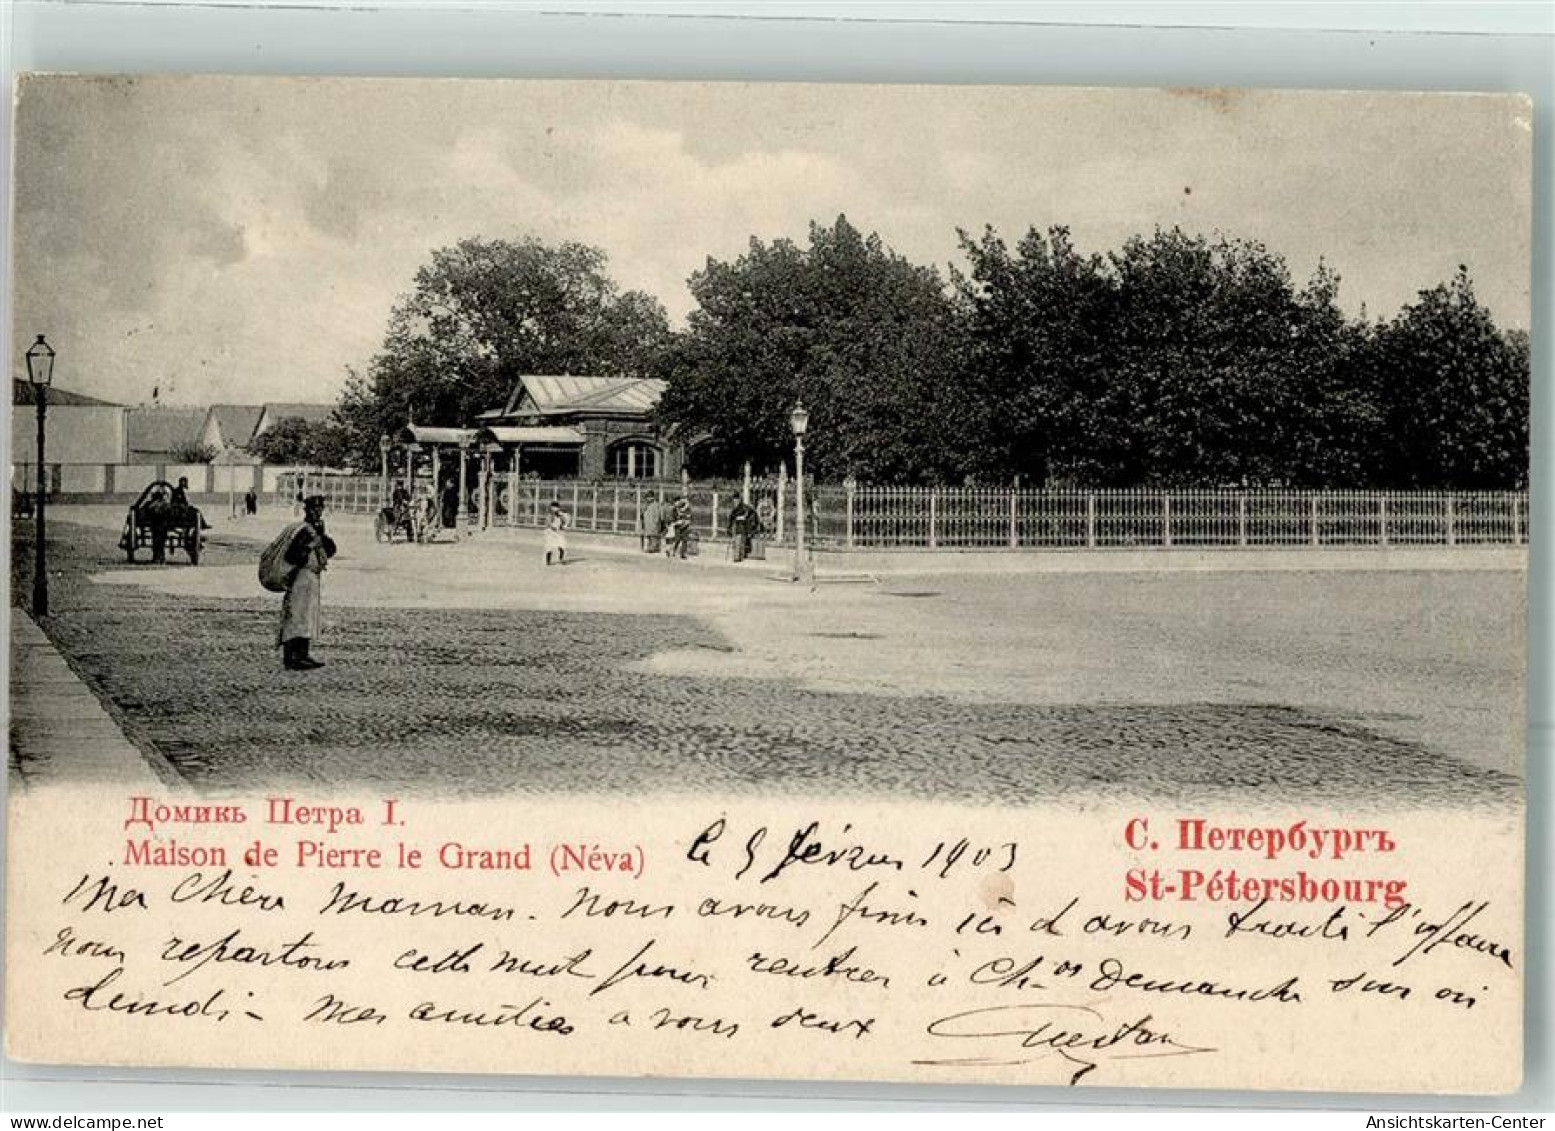 Домикъ Петра I.
Maison de Pierre le Grand (Néva)
С. Петербургъ
St-Pétersbourg
le 5 février 1903
Ma chère Maman. Nous avons fini ici et avons traité l'affaire
nous repartons cette nuit pour rentrer à Ch.os Demanche soir ou
lundi - Mes amitiés a vous deux
Gaston
www.delcampe.net
Ansichtskarten-Center